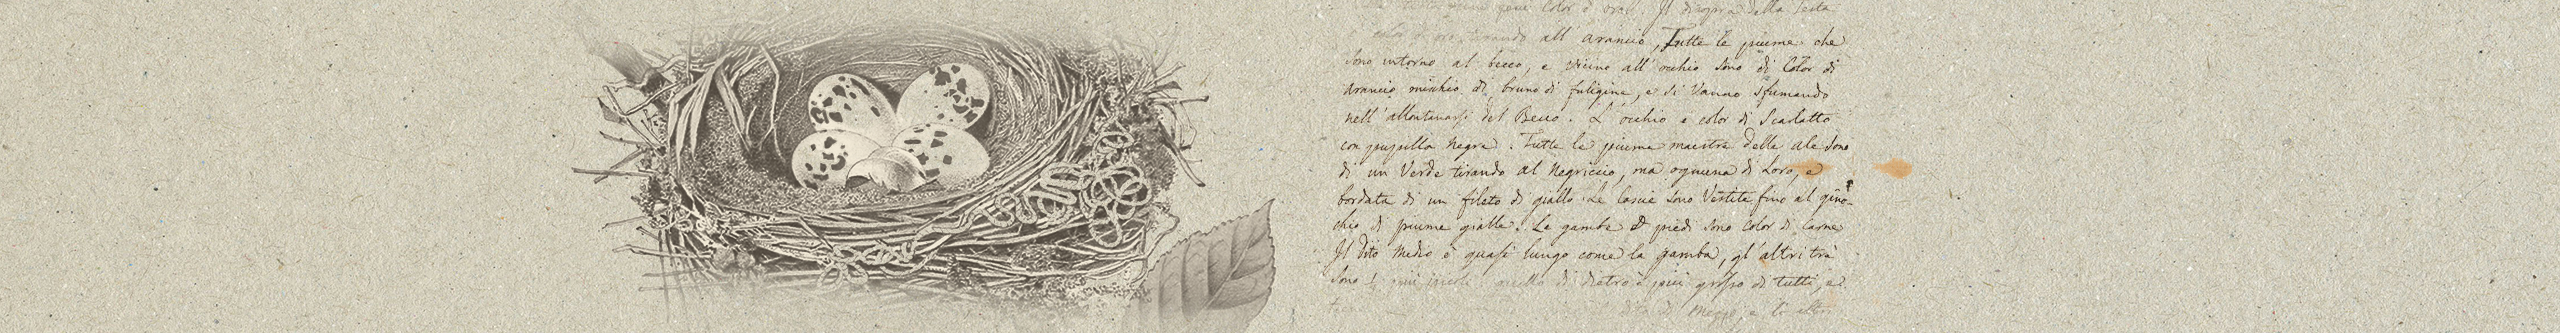 color d'oro. Il disopra della Testa
color d'oro, tirando all' arancio, Tutte le piume che
sono intorno al becco, e vicino all' occhio sono di Color di
arancio mischio di bruno di fuligine, e si Vanno sfumando
nell' allontanarsi del Becco. L' occhio e color di Scarlatto
con pupilla Negra. Tutte le piume maestre delle ale sono
di un Verde tirando al Negriccio, ma ognuna di Loro, e
bordata di un fileto di giallo. Le Coscie sono Vestite fino al gino-
chio di piume gialle. Le gambe & piedi sono Color di Carne
Il Dito Medio è quasi lungo come la gamba, gl' altri tre
Sono più quello di dietro è più grosso di tutti, e
di e li altri